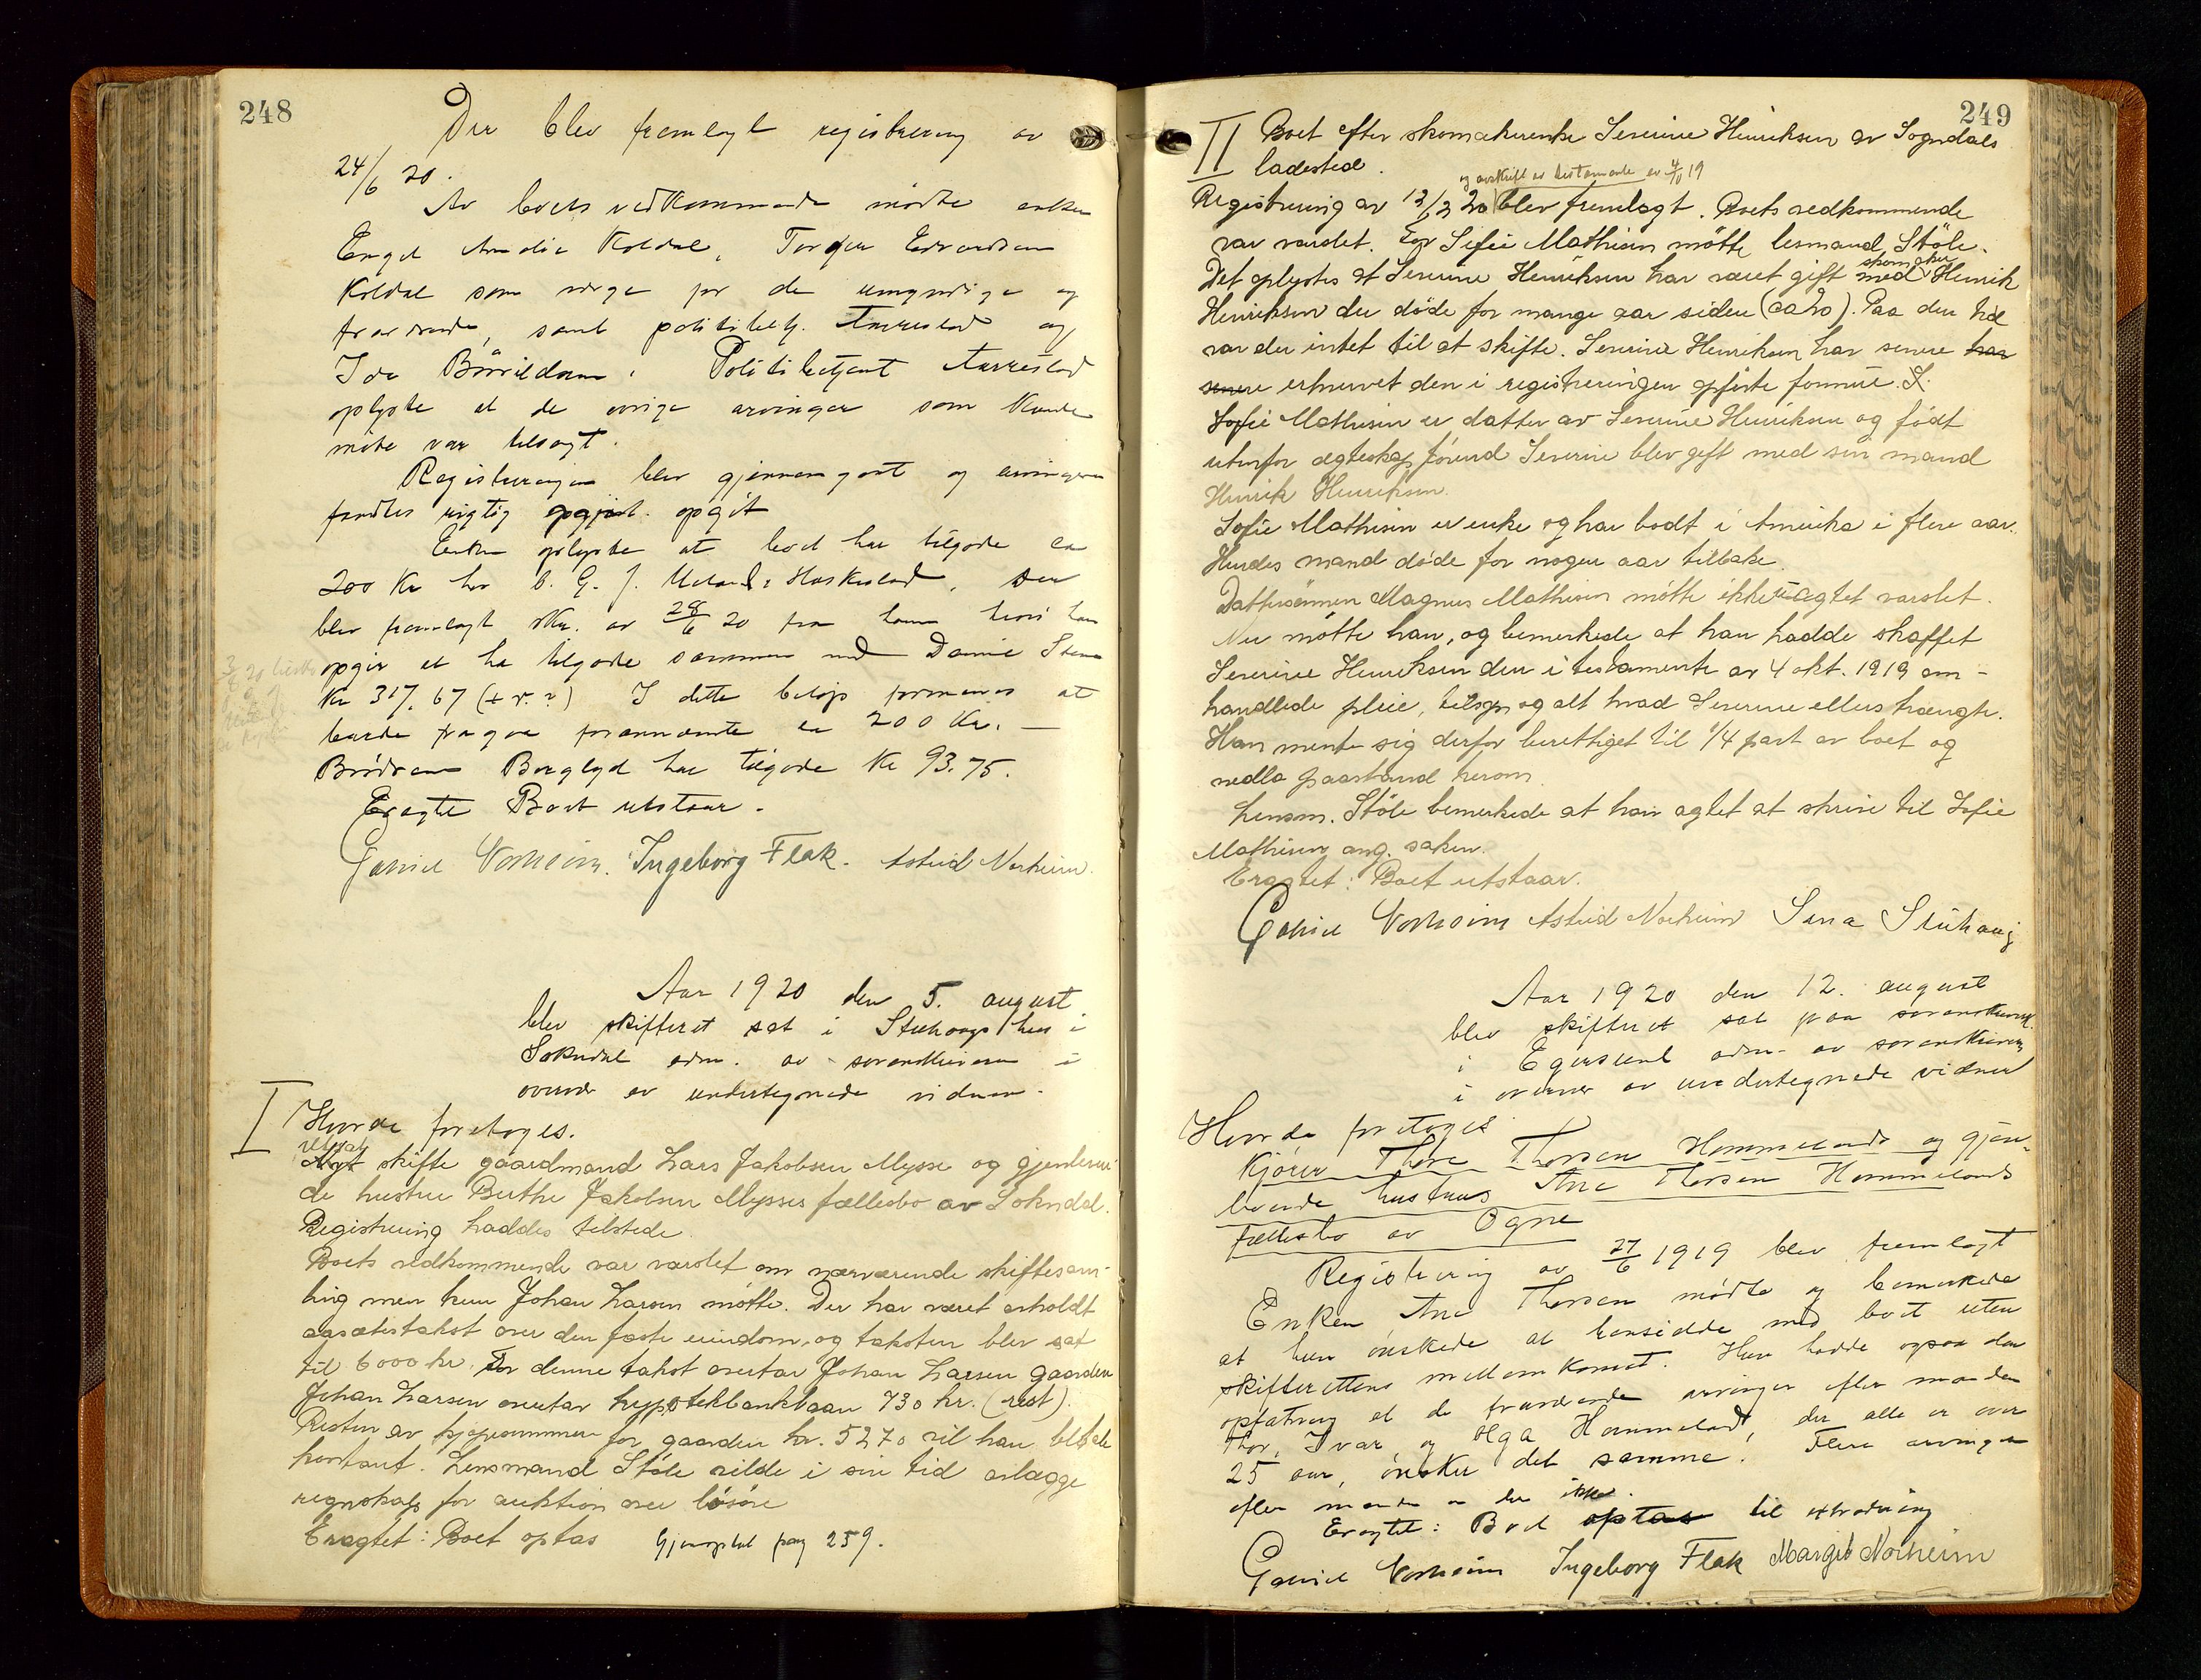 248
Der blev fremlagt registrering av
24/6 20.
Av boets vedkommende mødte enken
Engel Amalie Koldal, Torger Edvardsen
Koldal som verge for de umyndige og
fraværende, samt politibetj. Aarrestad og
Ida Bøvildsen. Politibetjent Aarrestad
oplyste at de øvrige arvinger som kunde
møte var tilsagt.
Registreringen blev gjennemgaat og arvingerne
fandtes rigtig opgjort. opgit
Enken oplyste at boet har tilgode ca
200 Kr hos G. J. Hauskestad, der
blev fremlagt skr. av 28/6 20 fra ham hvori han
opgir at ha tilgode sammen med Daniel
Kr 317,67 (+ r. ?) I dette beløp formenes at
burde fragaa forannevnte ca 200 Kr. —
Brødrene Berglyd har tilgode Kr 93.75.
Eragtet Boet utstaar.
Gabriel Norheim. Ingeborg Flak. Astrid Norheim.
Aar 1920 den 5. august
blev skifteret sat i Steihaugs hus i
Sokndal adm. av sorenskriveren i
overvær av undertegnede vidner.
I
Hvorda foretoges.
Avgt skifte gaardmand Lars Jakobsen Mysse og gjenleven-
de hustru Berthe Jakobsen Mysses fællesbo av Sokndal.
Registrering haddes tilstede.
Boets vedkommende var varslet om nærværende skiftesam-
ling men kun Johan Larsen møtte. Der har været avholdt
aasætestakst over den faste eiendom, og taksten blev sat
til 6000 kr. For denne takst overtar Johan Larsen gaarden
Johan Larsen overtar hypotekbanklaan 730 kr. (rest).
Resten av kjøpesummen for gaarden kr. 5270 vil han betale
kontant. Lensmand Støle vilde i sin tid avlægge
regnskap for auktion over løsøre
Eragtet: Boet optas Gjenoptat pag 259.
249
II Boet efter skomakerenke Severine Henriksen av Sogndals
ladested.
og avskrift av testamente av 4/10 19
Registrering av 12/3 20 blev fremlagt. Boets vedkommende
var varslet. For Sofie Mathisen møtte lensmand Støle.
skomaker
Det oplystes at Severine Henriksen har været gift med Henrik
Henriksen der døde for mange aar siden (ca 20). Paa den tid
var der intet til at skifte. Severine Henriksen har senere har
senere erhvervet den i registreringen opførte formue.
Sofie Mathisen er datter av Severine Henriksen og født
utenfor ægteskap førend Severine blev gift med sin mand
Henrik Henriksen.
Sofie Mathisen er enke og har bodt i Amerika i flere aar.
Hendes mand døde for nogen aar tilbake.
Dattersønnen Magnus Mathisen møtte ikke uagtet varslet.
Nu møtte han, og bemerkede at han hadde skaffet
Severine Henriksen den i testamente av 4 okt. 1919 om-
handlede pleie, tilsyn og alt hvad Severine ellers trængte.
Han mente sig derfor berettiget til 1/4 part av boet og
nedla paastand herom.
Lensm. Støle bemerkede at han agtet at skrive til Sofie
Mathisen ang. saken.
Eragtet: Boet utstaar.
Gabriel Norheim Astrid Norheim Sina Steihaug
Aar 1920 den 12. august
blev skifteret sat paa sorenskriverk.
i Egersund adm. av sorenskriveren
i overvær av undertegnede vidner
Hvorda foretoges
Kjører Thore Thorsen Hommelands og gjen-
levende hustrus Ane Thorsen Hommelands
fællesbo av Ogne
Registrering av 27/6 1919 blev fremlagt
Enken Ane Thorsen mødte og bemerkede
at hun ønskede at hensidde med boet uten
skifterettens mellemkomst. Hun hadde ogsaa den
opfatning at de fraværende arvinger efter manden
Thor, Ivar og Olga Hommeland, der alle er over
25 aar, ønsker det samme. Flere arvinger
efter manden er der ikke.
Eragtet: Boet optas til extradering
Gabriel Norheim Ingeborg Flak Margit Norheim